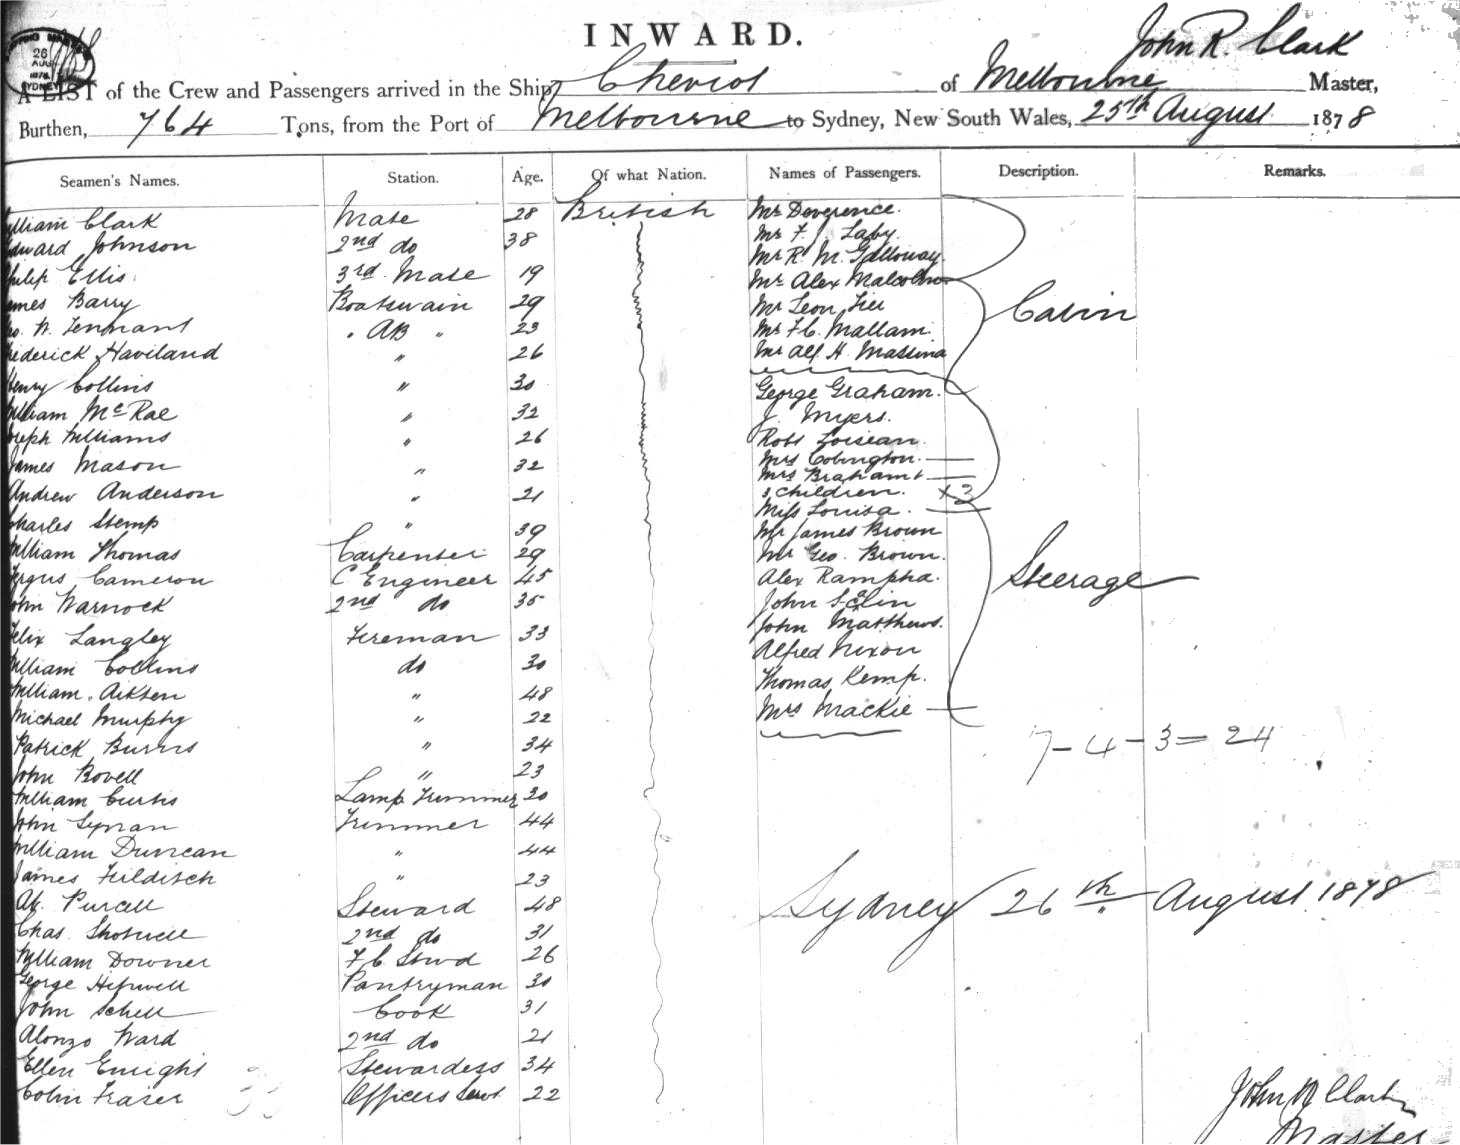 INWARD.
John R. Clark
26
AUG
1878
SYDNEY
A LIST of the Crew and Passengers arrived in the Ship Cheviot of Melbourne Master,
Burthen, 764 Tons, from the Port of Melbourne to Sydney, New South Wales, 25th August 1878
Seamen's Names. Station. Age. Of what Nation. Names of Passengers. Description. Remarks.
William Clark Mate 28 British
Edward Johnson 2nd do 38
Philip Ellis 3rd Mate 19
James Barry Boatswain 29
Geo. W. Tennant " AB " 23
Frederick Haviland " 26
Henry Collins " 30
William McRae " 32
Joseph Williams " 26
James Mason " 32
Andrew Anderson " 21
Charles Stemp " 39
William Thomas Carpenter 29
Fergus Cameron C Engineer 45
John Warnock 2nd do 35
Felix Langley Fireman 33
William Collins do 30
William Aitken " 48
Michael Murphy " 22
Patrick Burns " 34
John Bovell " 23
William Curtis Lamp Trimmer 30
John Trimmer 44
William Duncan " 44
James Tilditch " 23
Purcell Steward 48
Chas. Shotwell 2nd do 31
William Downer F C Stwd 26
George Hipwell Pantryman 30
John Schell Cook 31
Alonzo Ward 2nd do 21
Ellen Enright Stewardess 34
Colin Fraser Officers Servt 22
Mr Deverence.
Mr F. J. Laby.
Mr R. M. Galloway.
Mr Alex Malcolm
Mr Leon
Mr F. C. Mallam.
Mr Alf H. Massina
Cabin
George Graham.
J. Myers.
Robt Loisean.
Mrs Covington.
Mrs Braham &
3 children. x3
Miss Louisa.
Mr James Brown
Mr Geo. Brown.
Alex Rampha.
John
John Matthews.
Alfred Nixon
Thomas Kemp.
Mrs Mackie
Steerage
7-4-3=24
Sydney 26th August 1878
John R Clark
Master